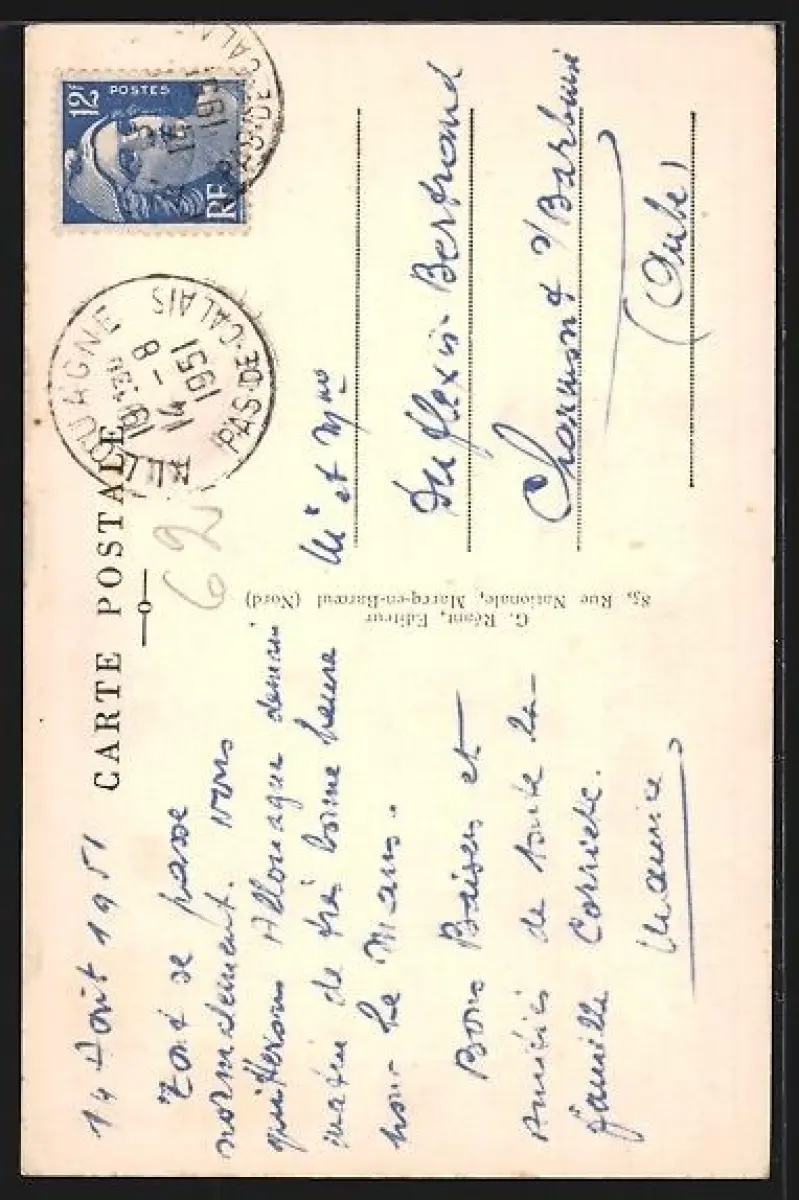 CARTE POSTALE
14 Août 1951
Tout se passe
normalement. Nous
quitterons Allouagne demain
matin de très bonne heure
pour Le Mans.
Bons Baisers et
Amitiés de toute la
famille Corriette.
Maurice
G. Réant, Editeur
85, Rue Nationale, Marcq-en-Barœul (Nord)
62
12F
POSTES
RF
PAS-DE-CALAIS
1951
ALLOUAGNE
14 - 8
1951
PAS-DE-CALAIS
Mr et Mme
Bertrand
Chaumont s/Barbuise
(Aube)